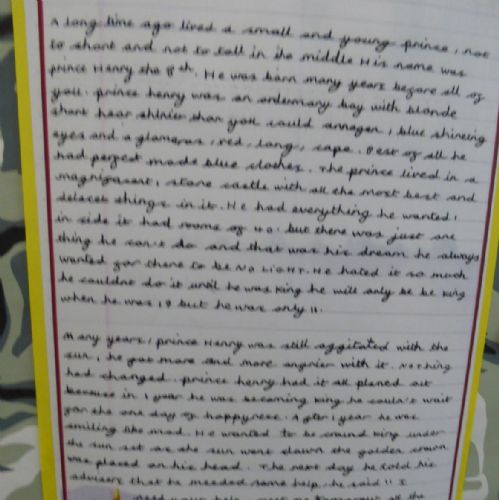 A long time ago lived a small and young prince, not
to short and not to tall in the middle His name was
prince Henry the 8th. He was born many years before all of
you. prince henry was an ordernary boy with blonde
short hear shinier than you could annagen, blue shineing
eyes and a glamerus, red, long, cape. Best of all he
had perfect made blue clothes. The prince lived in a
magnifasent, stone castle with all the most best and
delacet things in it. He had everything he wanted,
in side it had rooms of 40. but there was just one
thing he can't do and that was his dream he always
wanted for there to be NO LIGHT. He hated it so much
he couldnt do it until he was King he will only be be king
when he was 19 but he was only 11.
Many years, prince Henry was still aggitated with the
sun, he got more and more angrier with it. Nothing
had changed. prince henry had it all planed out
because in 1 year he was becoming king he couldn't wait
for the one day of happyness. After 1 year he was
smiling like mad. He wanted to be cround King under
the sun set as the sun went down the golden crown
was placed on his head. The next day he told his
advisers that he needed some help, he said "I
need your help